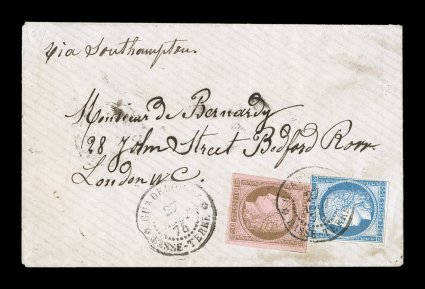 via Southampton.
Monsieur de Bernardy
28 John Street Bedford Row
London W.C.
GUADELOUPE
27
76
BASSE-TERRE